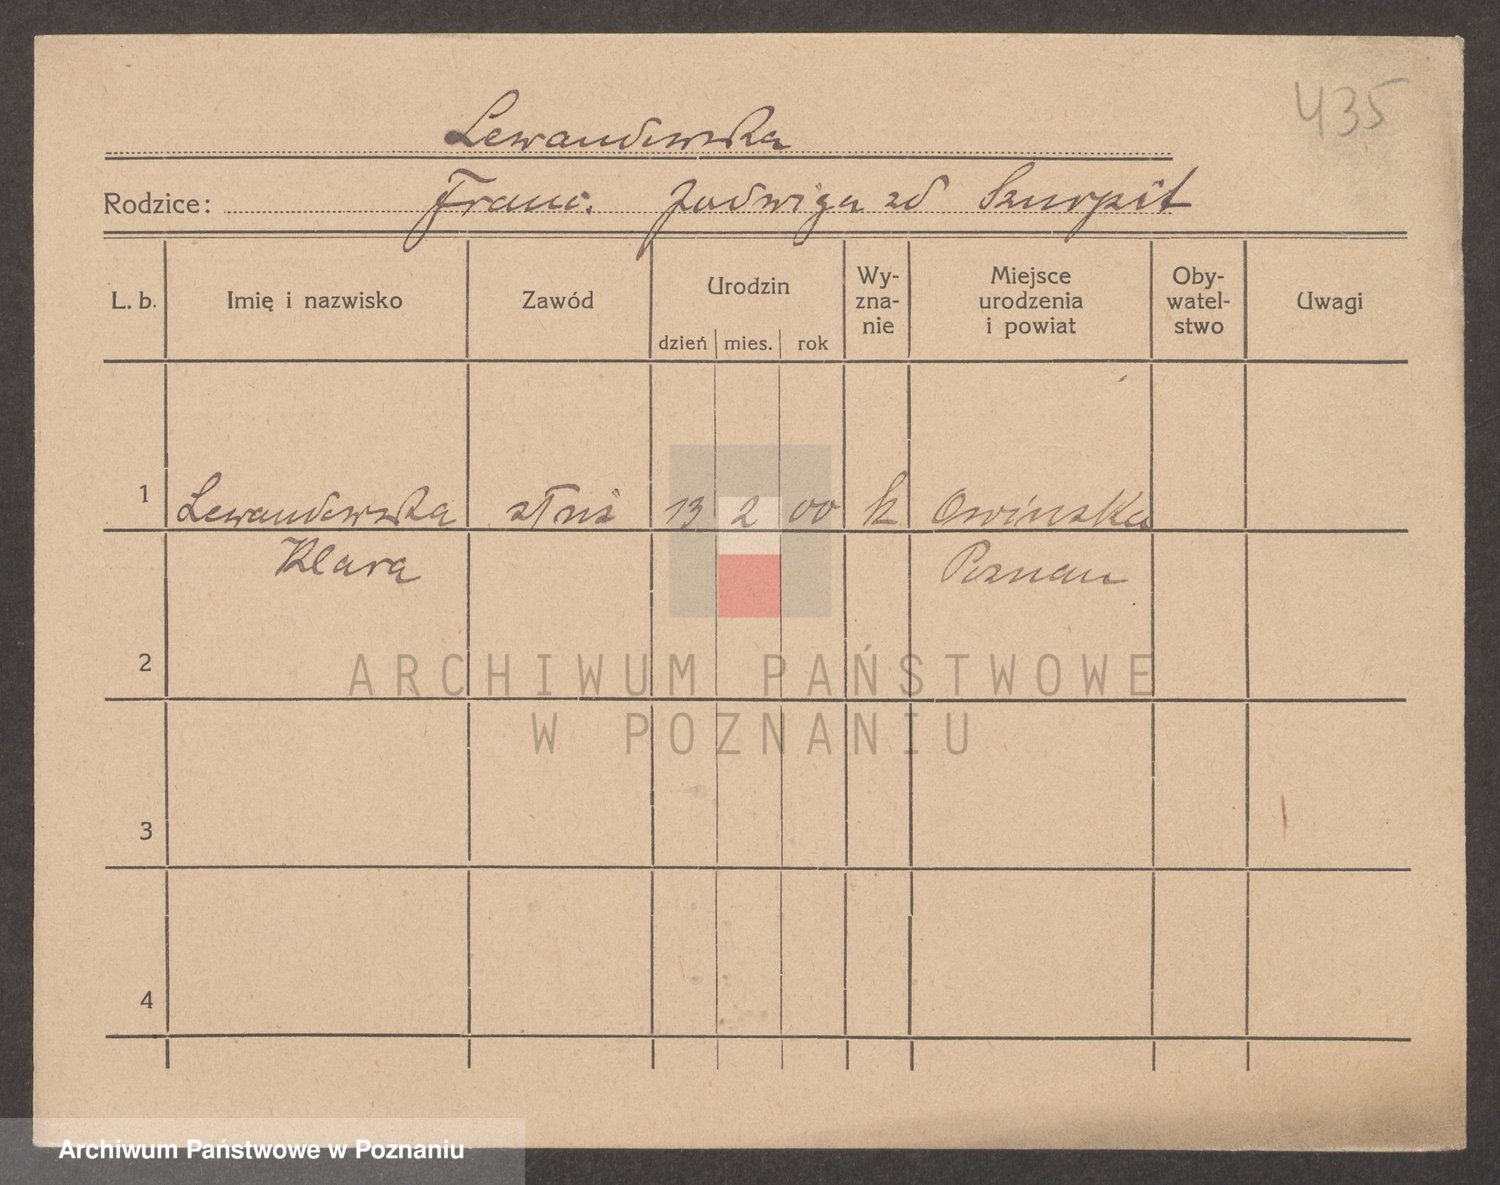 435
Lewandowska
Rodzice: Franc. Jadwiga zd Szurpit
L. b. Imię i nazwisko Zawód Urodzin dzień mies. rok Wy-zna-nie Miejsce urodzenia i powiat Oby-watel-stwo Uwagi
1 Lewandowska 13 2 00 k Owińska
Klara Poznan
2
ARCHIWUM PAŃSTWOWE
W POZNANIU
3
4
Archiwum Państwowe w Poznaniu